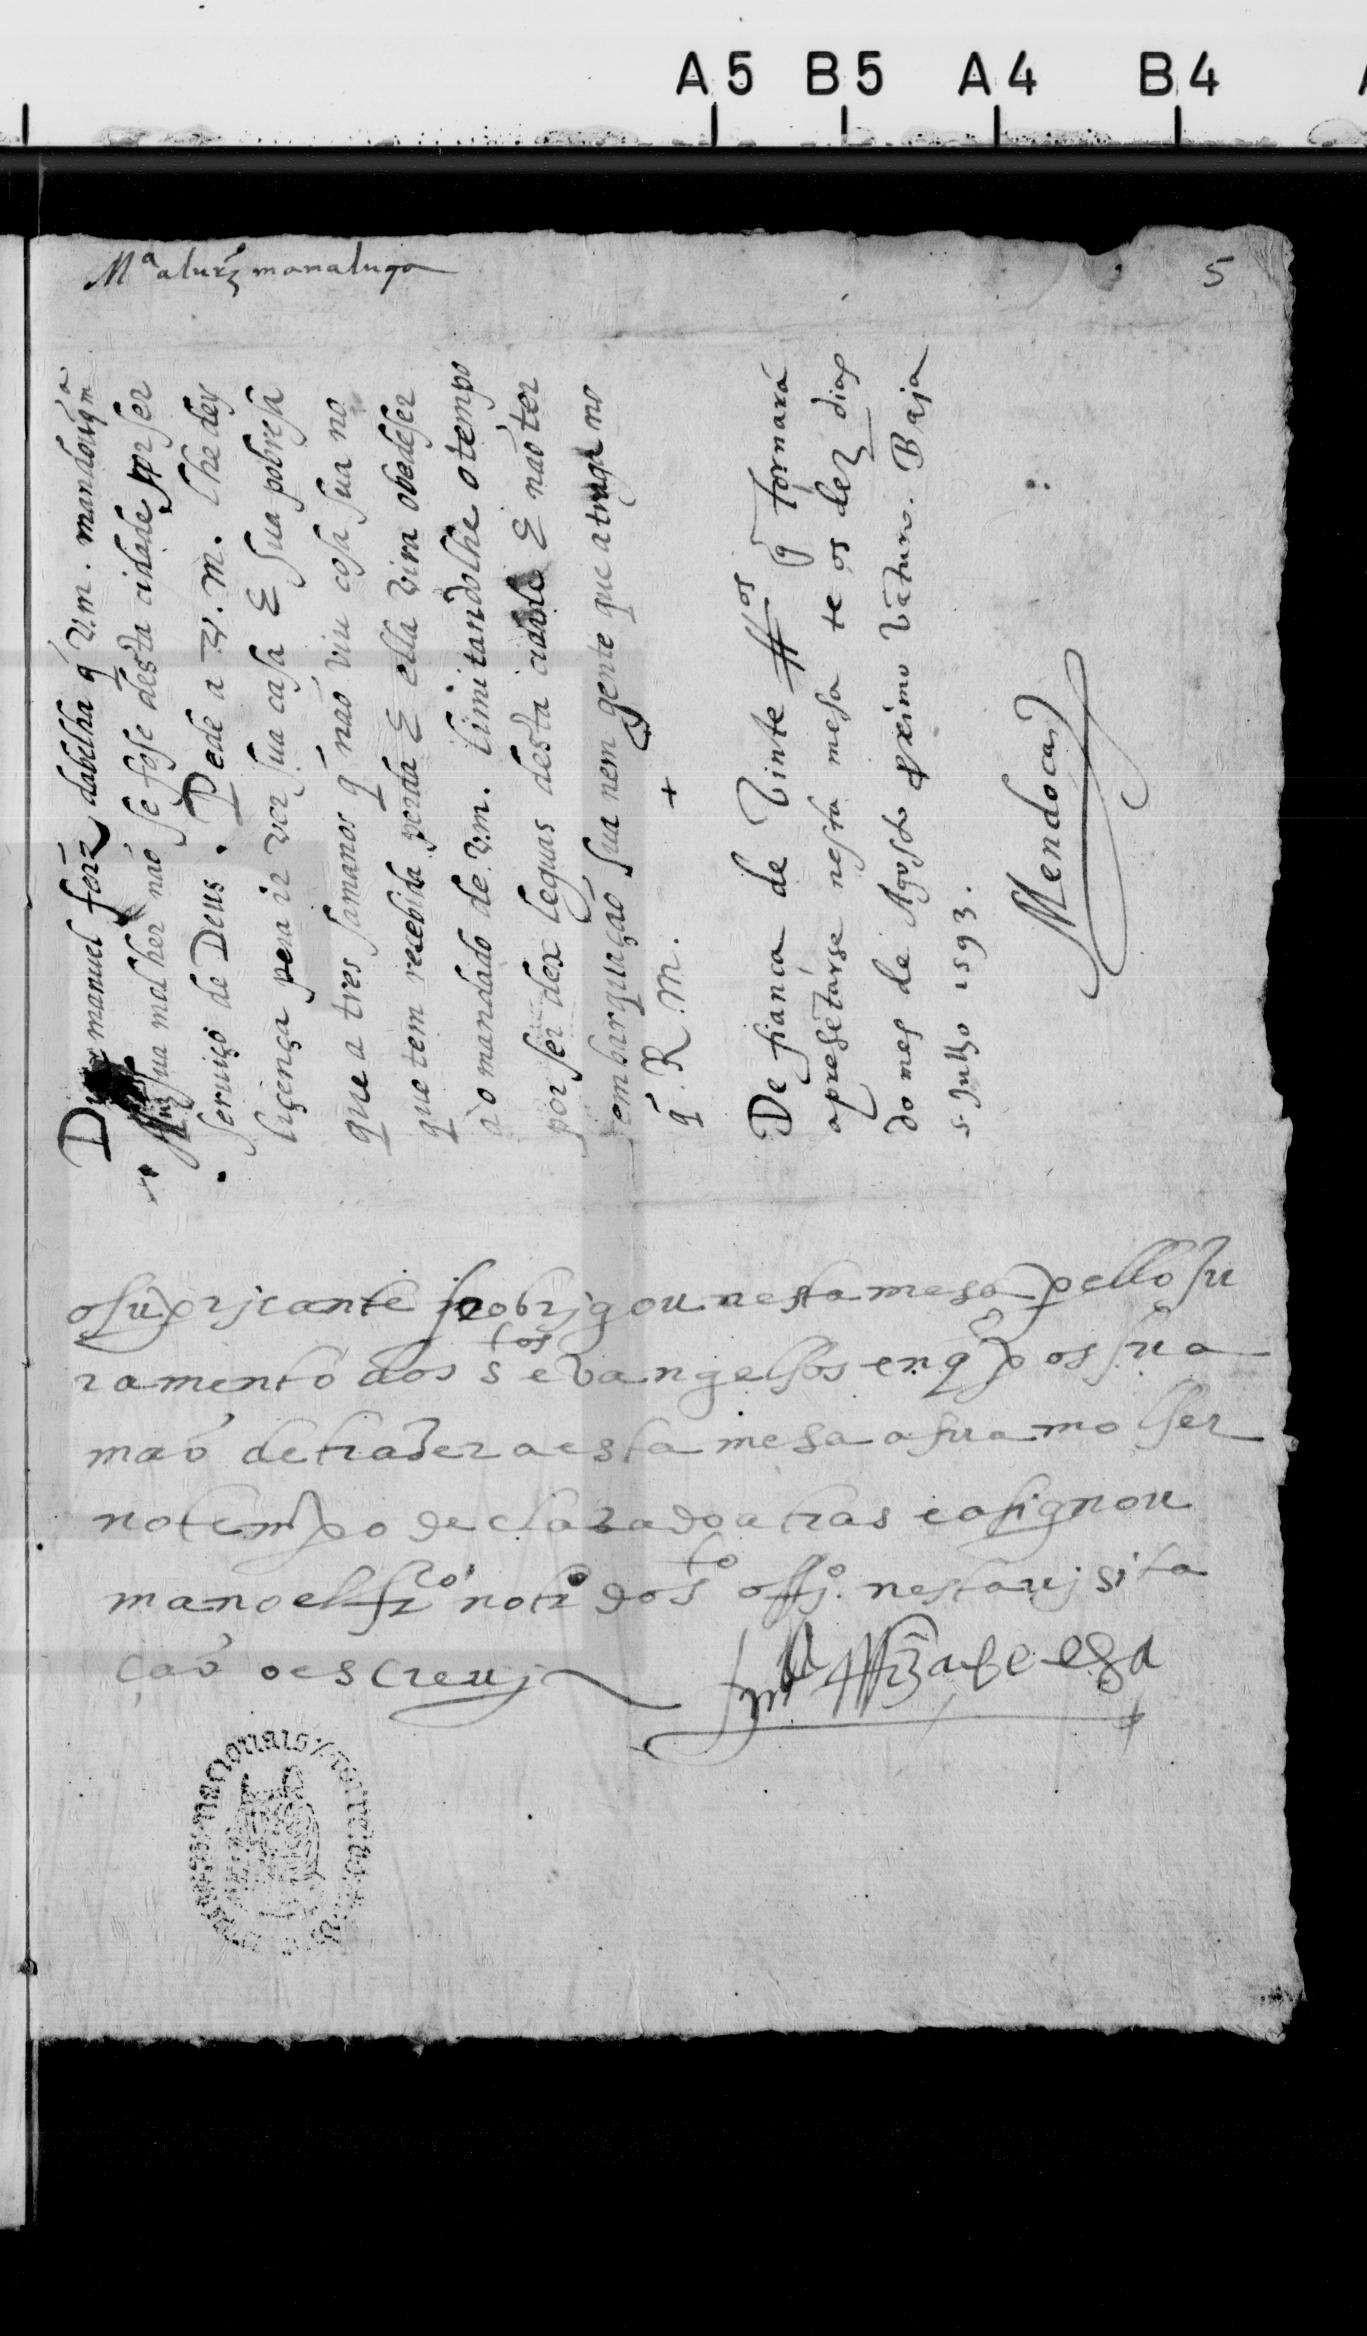 A5 B5 A4 B4
Mª alurz maluga
5
Diz manuel fõrz dabelha q̃ V.m. mandou q̃ Mª
sua molher não se fose desta cidade por ser
seruiço de Deus. Pede a V.M. lhe dey
liçença pera ir ver sua casa E sua pobresa
que a tres samanas q̃ não viu cosa sua no
que tem recebida perda E ella vira obedeser
ao mandado de V.m. limitandolhe o tempo
por ser dex leguas desta cidade E não ter
embarquação sua nem gente que a traga no
q̃ R. M. +
De fiança de Vinte q̃ tornará
apresẽtarse nesta mesa te os dez dias
do mes de Agosto proximo Vẽturo. Baja
5. Julho 1593.
Mendoça
osupricante se obrigou nesta mesa pello ju
ramento dos stos evangelhos en q̃ pos sua
maõ de trazer a esta mesa a sua molher
no tempo declarado atras e asignou
manoel frco notro do sto offo. nesta uisita
çaõ o escreuj